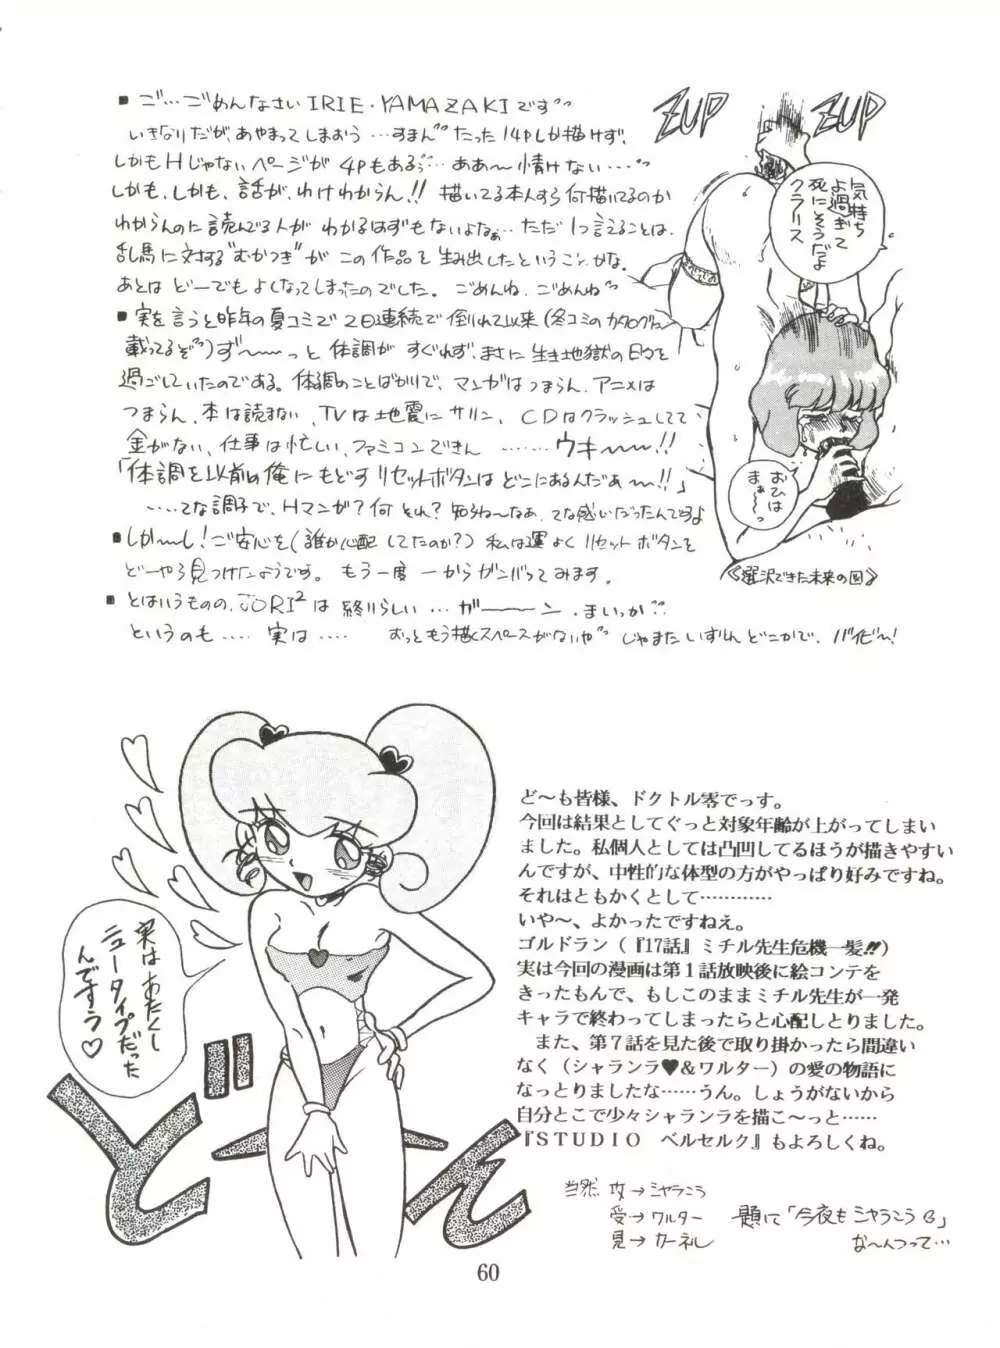 ■ ゴ…ごめんなさい IRIE・YAMAZAKIです
いきなりだが、あやまってしまおう…すまん たった14Pしか描けず、
しかもHじゃないページが 4Pもあるっ…ああ～情けない……
しかも、しかも、話が、わけわからん!! 描いてる本人すら何描いてるのか
わからんのに読んでる人が わかるはずもないよなぁ…ただ1つ言えることは、
乱馬に対する"むかつき"が この作品を生み出したということかな。
あとは どーでもよくなってしまったのでした。ごめんね、ごめんね
■ 実を言うと昨年の夏コミで2日連続で倒れて以来(冬コミのカタログに
載ってるぞ)ず～～っと 体調が すぐれず、まさに生き地獄の日々を
過ごしていたのである。体調のことばかりで、マンガはつまらん、アニメは
つまらん、本は読まない、TVは地震にサリン、CDはクラッシュしてて
金がない、仕事は忙しい、ファミコンできん ……ウキ～～!!
「体調を以前の俺にもどすリセットボタンはどこにあるんだぁ～!!」
……てな調子で、Hマンガ?何それ?知らね～なあ、てな感じだったんですよ
■ しか～し!ご安心を(誰か心配してたのか?)私は運よくリセットボタンを
どーやら見つけたようです。もう一度 一からガンバってみます。
■ とはいうものの、JORI²は 終りらしい…ガ～～ン、まいっか
というのも…… 実は…… おっともう描くスペースがないや じゃまたいずれどこかで、バイビ～!
ZUP
ZUP
気持ち
よ過ぎて
死にそうだよ
クラリス
おひは
まぁ～っ
《選択できた未来の図》
実はわたくし
ニュータイプだった
んですう♡
どーん
ど～も皆様、ドクトル零でっす。
今回は結果としてぐっと対象年齢が上がってしまい
ました。私個人としては凸凹してるほうが描きやすい
んですが、中性的な体型の方がやっぱり好みですね。
それはともかくとして…………
いや～、よかったですねえ。
ゴルドラン（『17話』ミチル先生危機一髪!!）
実は今回の漫画は第１話放映後に絵コンテを
きったもんで、もしこのままミチル先生が一発
キャラで終わってしまったらと心配しとりました。
　また、第７話を見た後で取り掛かったら間違い
なく（シャランラ♥＆ワルター）の愛の物語に
なっとりましたな……うん。しょうがないから
自分とこで少々シャランラを描こ～っと……
『ＳＴＵＤＩＯ　ベルセルク』もよろしくね。
当然 攻→シャランラ
受→ワルター
見→カーネル
題に「今夜もシャランラ
な～んつって…
60